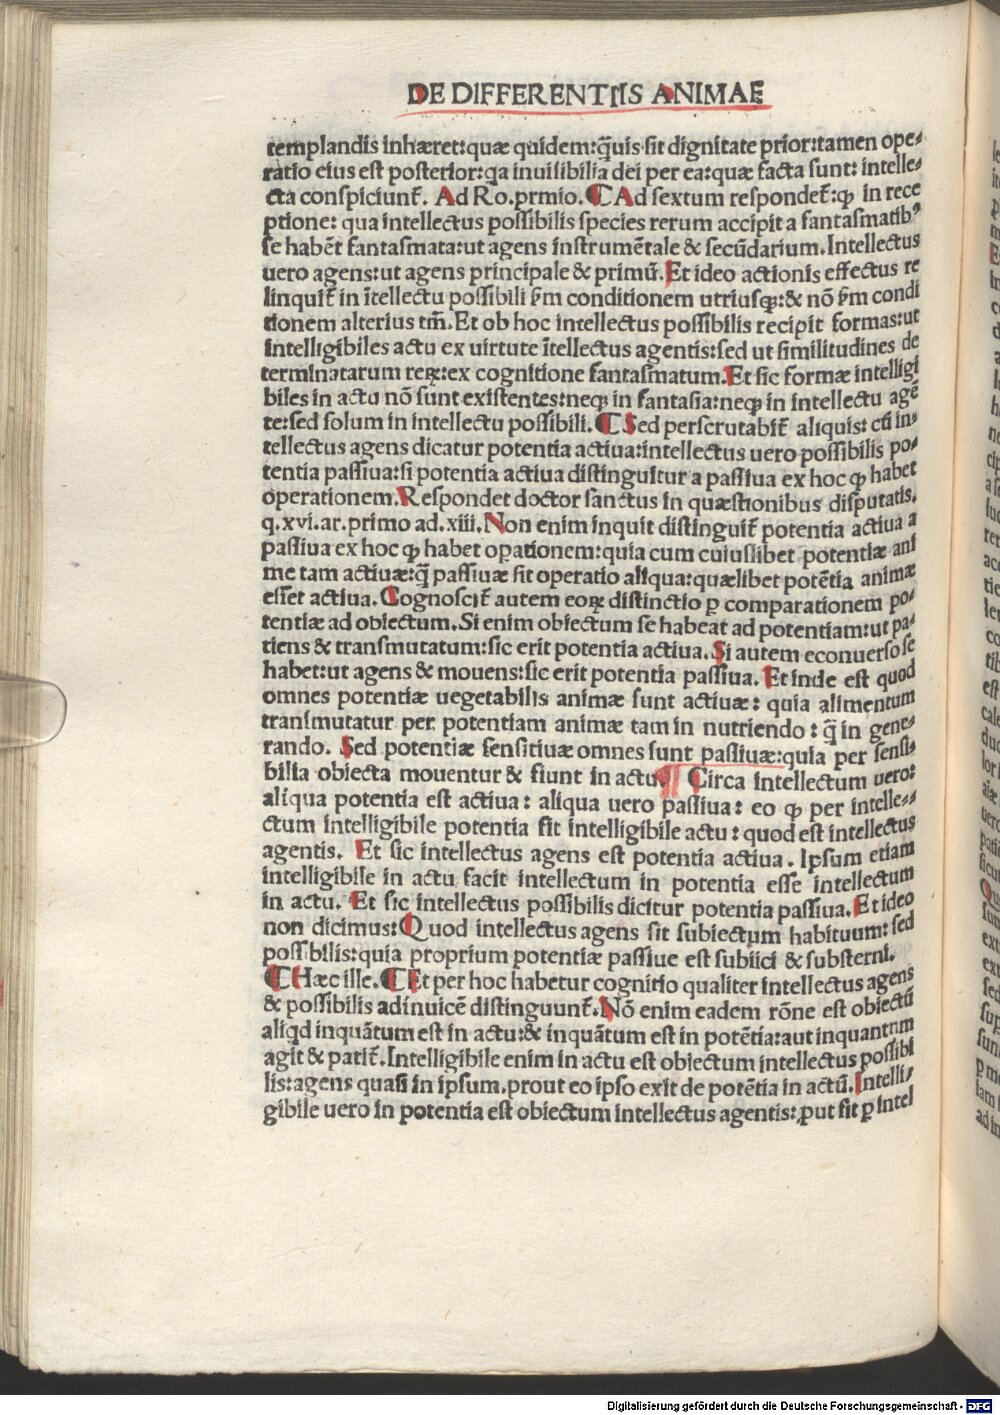 DE DIFFERENTIIS ANIMAE
templandis inhæret:quæ quidem:q̃uis sit dignitate prior:tamen ope⸗
ratio eius est posterior:qa inuisibilia dei per ea:quæ facta sunt: intelle⸗
cta conspiciunt᷑. Ad Ro.prmio. ⸿ Ad sextum respondet᷑:ꝙ in rece
ptione: qua intellectus possibilis species rerum accipit a fantasmatibꝰ
se habẽt fantasmata:ut agens instrumẽtale & secũdarium.Intellectus
uero agens:ut agens principale & primũ.Et ideo actionis effectus re
linquit᷑ in ĩtellectu possibili ẜm conditionem utriusqꝫ:& nõ ẜm condi
tionem alterius tm̃.Et ob hoc intellectus possibilis recipit formas:ut
intelligibiles actu ex uirtute ĩtellectus agentis:sed ut similitudines de
terminatarum reꝝ:ex cognitione fantasmatum.Et sic formæ intelligi
biles in actu nõ sunt existentes:neqꝫ in fantasia:neqꝫ in intellectu agẽ
te:sed solum in intellectu possibili.⸿ Sed perscrutabit᷑ aliquis: cũ in⸗
tellectus agens dicatur potentia actiua:intellectus uero possibilis po⸗
tentia passiua:si potentia actiua distinguitur a passiua ex hoc ꝙ habet
operationem.Respondet doctor sanctus in quæstionibus disputatis.
q.xvi.ar.primo ad.xiii.Non enim inquit distinguit᷑ potentia actiua a
passiua ex hoc ꝙ habet oꝑationem:quia cum cuiuslibet potentiæ ani
me tam actiuæ:q̃ passiuæ sit operatio aliqua:quælibet potẽtia animæ
esset actiua.Cognoscit᷑ autem eoꝝ distinctio ꝑ comparationem po⸗
tentiæ ad obiectum.Si enim obiectum se habeat ad potentiam:ut pa⸗
tiens & transmutatum:sic erit potentia actiua.Si autem econuerso se
habet:ut agens & mouens:sic erit potentia passiua. Et inde est quod
omnes potentiæ uegetabilis animæ sunt actiuæ: quia alimentum
transmutatur per potentiam animæ tam in nutriendo: q̃ in gene⸗
rando. Sed potentiæ sensitiuæ omnes sunt passiuæ:quia per sensi⸗
bilia obiecta mouentur & fiunt in actu. ¶ Circa intellectum uero:
aliqua potentia est actiua: aliqua uero passiua: eo ꝙ per intelle⸗
ctum intelligibile potentia fit intelligibile actu: quod est intellectus
agentis. Et sic intellectus agens est potentia actiua. Ipsum etiam
intelligibile in actu facit intellectum in potentia esse intellectum
in actu. Et sic intellectus possibilis dicitur potentia passiua.Et ideo
non dicimus:Quod intellectus agens sit subiectum habituum: sed
possibilis:quia proprium potentiæ passiue est subiici & substerni.
⸿Hæc ille.⸿Et per hoc habetur cognitio qualiter intellectus agens
& possibilis adinuicẽ distinguunt᷑.Nõ enim eadem rõne est obiectũ
aliqd inquãtum est in actu:& inquãtum est in potẽtia:aut inquantum
agit & patit᷑.Intelligibile enim in actu est obiectum intellectus possibi
lis:agens quasi in ipsum.prout eo ipso exit de potẽtia in actũ.Intelli⸗
gibile uero in potentia est obiectum intellectus agentis:ꝓut fit ꝑ intel
Digitalisierung gefördert durch die Deutsche Forschungsgemeinschaft - DFG